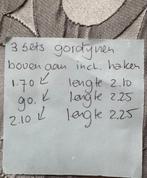 3 sets gordijnen
boven aan incl. haken
1.70 ↙ lengte 2.10
90. ↙ lengte 2.25
2.10 ↙ lengte 2.25